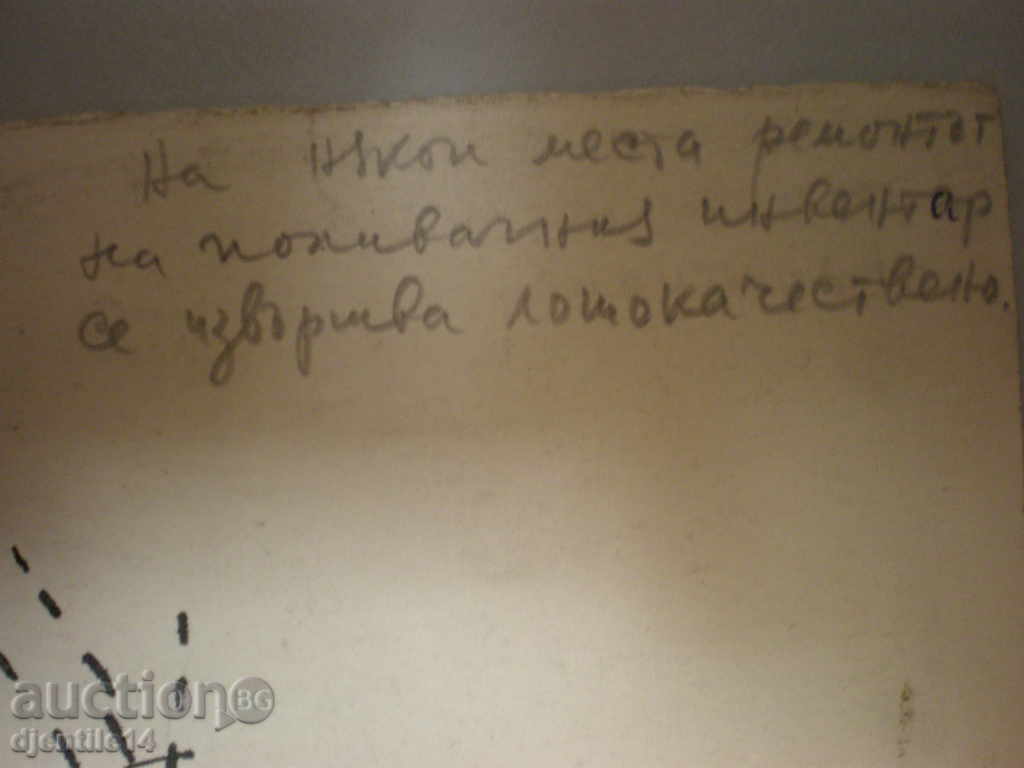 На някои места ремонтът
на поливачния инвентар
се извършва лошокачествено.
auctionBG
djentile14